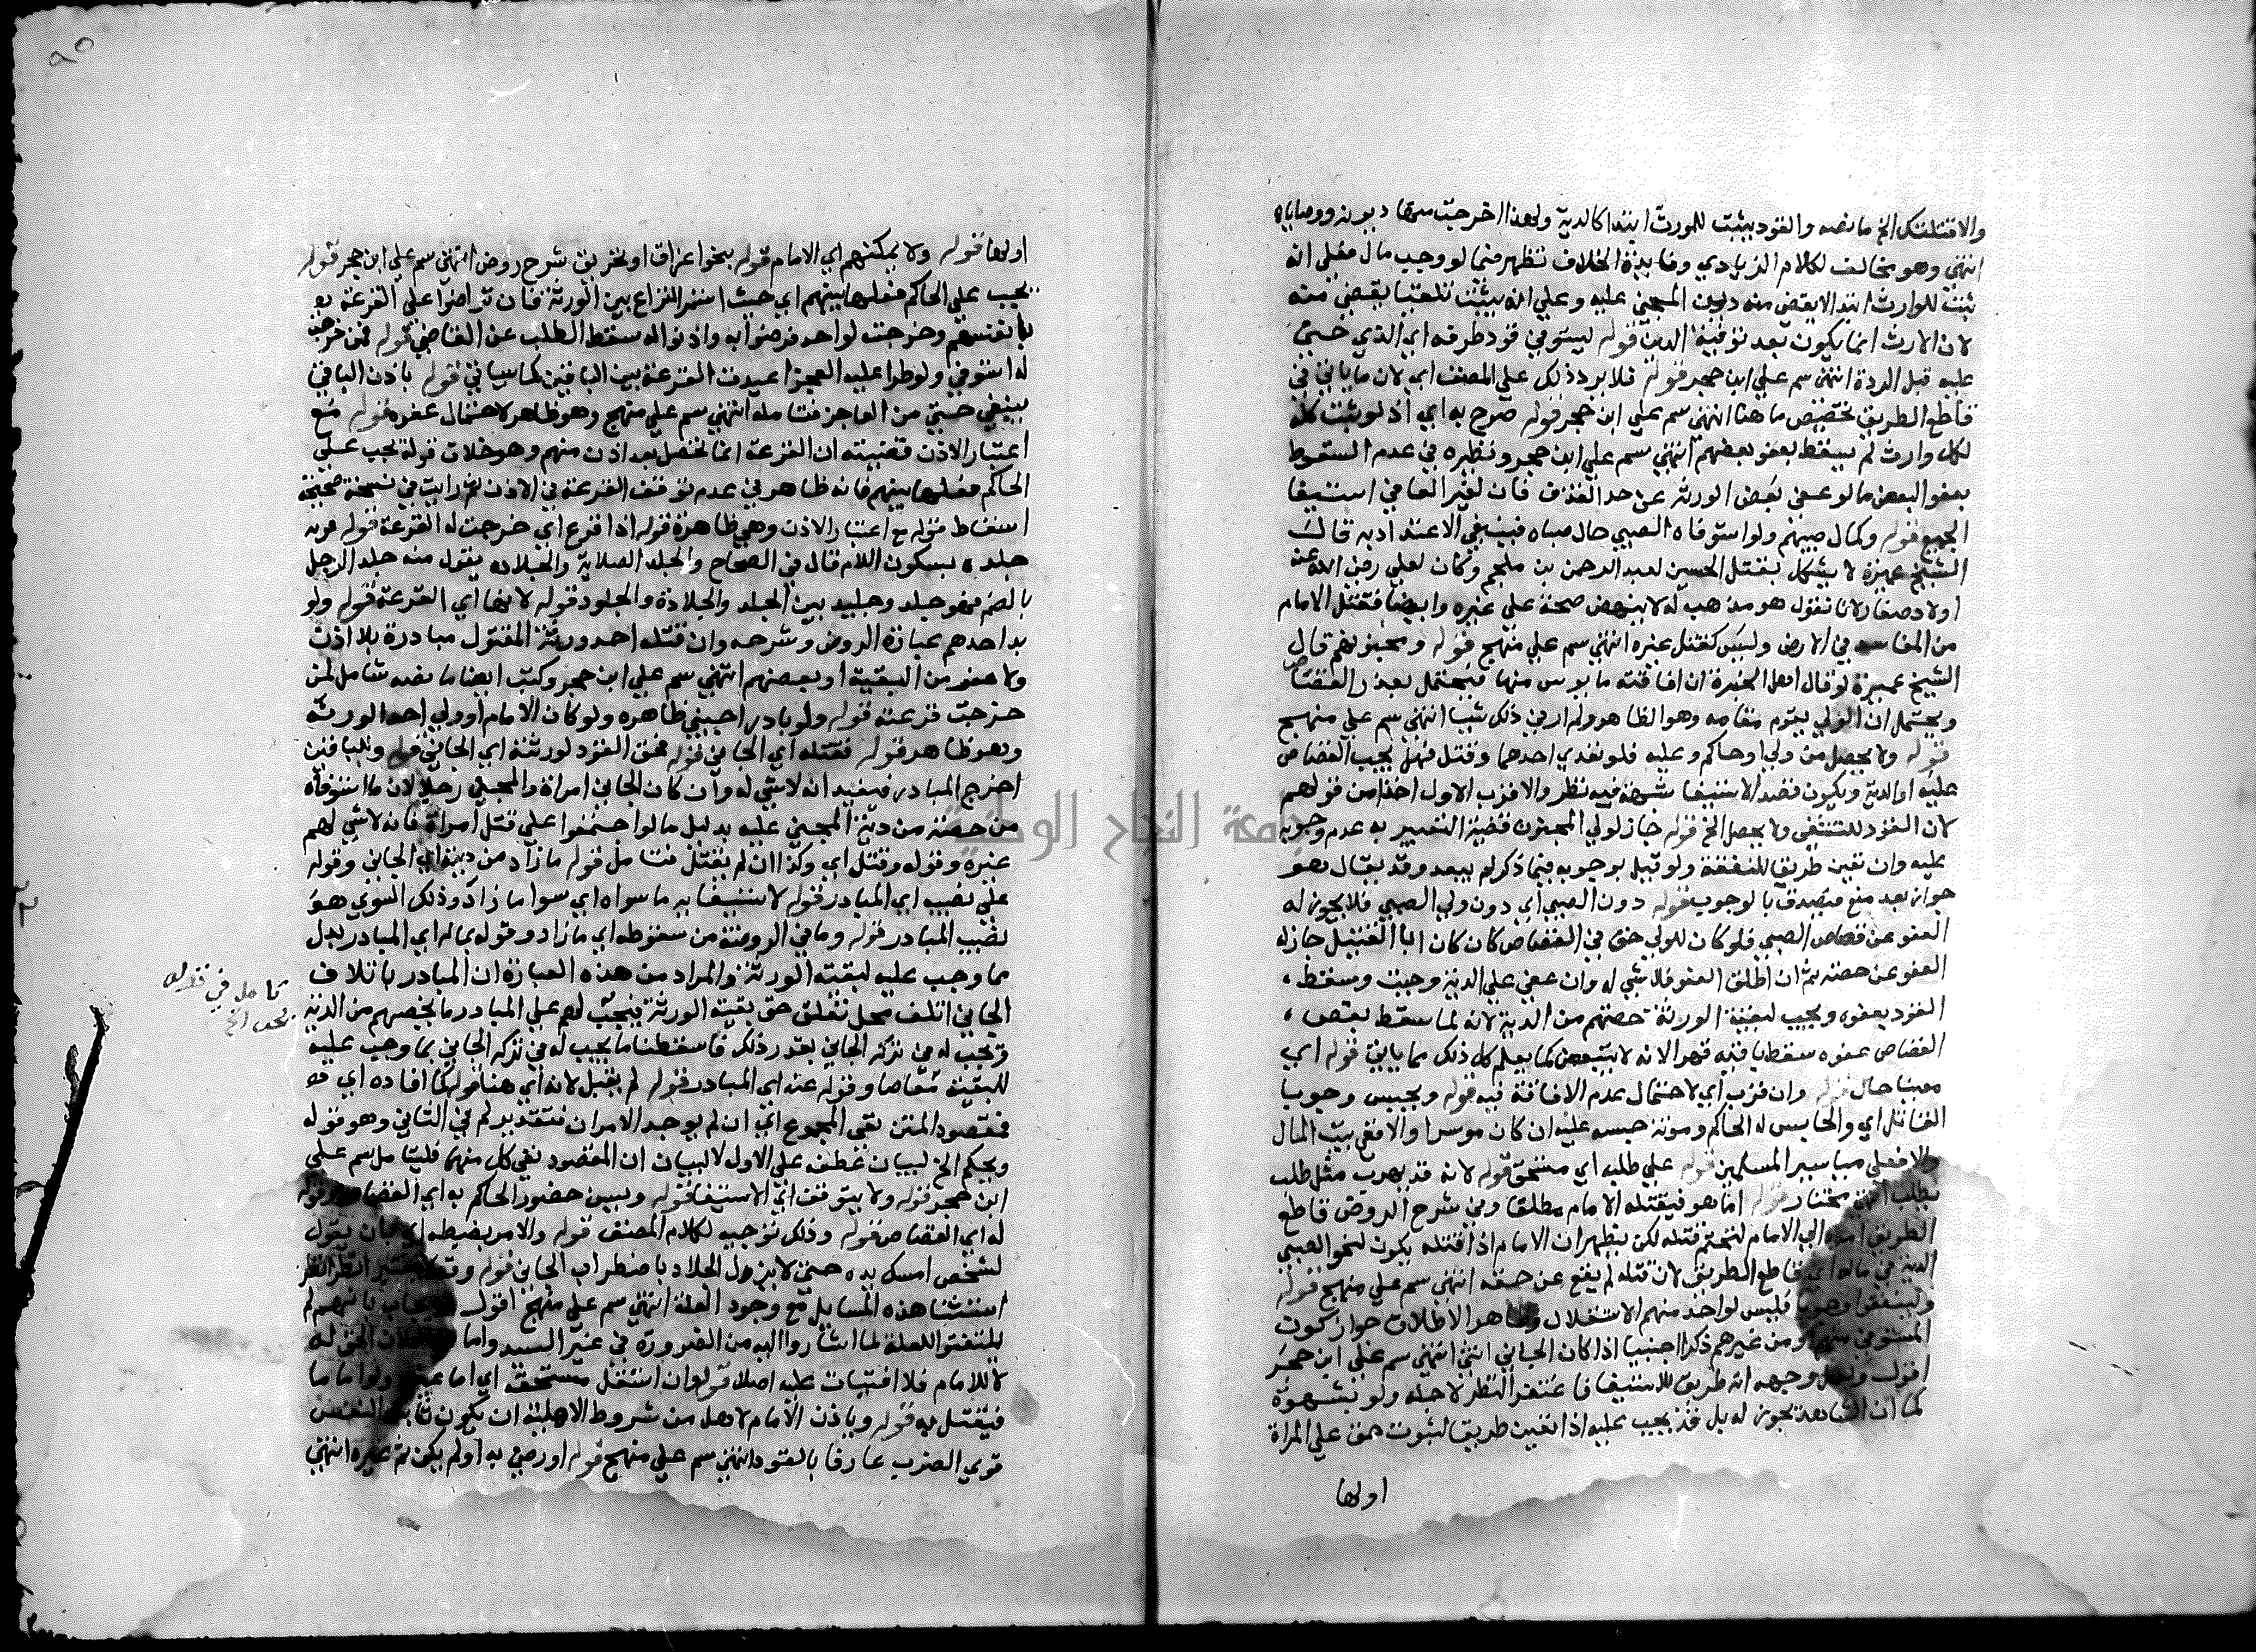 والا قتلتك الخ ما نصه والقود يثبت للمورث ابتداء كالدية ولهذا اخرجت منها ديونه ووصاياه
انتهى وهو مخالف لكلام الزيادي وفايدة الخلاف تظهر فيما لو وجب مال فعلى انه
ثبت للوارث ابتدا لا يقضى منه ديون المجني عليه وعلى انه يثبت تلقيا يقضى منه
لان الارث انما يكون بعد توفية الدين قوله ليستوفي قود طرفه اي الذي جني
عليه قبل الردة انتهى سم على ابن حجر قوله فلا يرد ذلك على المصنف اي لان ما ياتي في
قاطع الطريق تخصيص ما هنا انتهى سم على ابن حجر قوله صرح به اي اذ لو ثبت كله
لكل وارث لم يسقط بعفو بعضهم انتهى سم على ابن حجر ونظيره في عدم السقوط
بعفو البعض ما لو عفى بعض الورثة عن حد القذف فان لغير العافي استيفا
الجميع قوله وكمال صبيهم ولو استوفاه الصبي حال صباه فينبغي الاعتداد به قال
الشيخ عميرة لا يشكل بقتل الحسين لعبد الرحمن بن ملجم وكان لعلي رضي الله عنه
اولاد صغار لانا نقول هو مذهب له لا ينهض حجة على غيره وايضا فقتل الامام
من المفاسد في الارض وليس كقتل غيره انتهى سم على منهج قوله ومجنونهم قال
الشيخ عميرة لو قال اهل الخبرة ان افاقته مايوس منها فيحتمل تعذر القصاص
ويحتمل ان الولي يقوم مقامه وهو الظاهر ولم ار في ذلك شيا انتهى سم على منهج
قوله ولا يحصل من ولي او حاكم وعليه فلو تعدى احدهما وقتل فهل يجب القصاص
عليه او الدية ويكون قصد الاستيفا شبهة فيه نظر والاقرب الاول اخذا من قولهم
لان القود للتشفي ولا يحصل الخ قوله جاز لولي المجنون قضية التعبير به عدم وجوبه
عليه وان تعين طريقا للنفقة ولو قيل بوجوبه فيما ذكر لم يبعد وقد يقال هو
جواز بعد منع فيصدق بالوجوب قوله دون الصبي اي دون ولي الصبي فلا يجوز له
العفو عن قصاص الصبي فلو كان للولي حق في القصاص كان كان ابا القتيل جاز له
العفو عن حصته ثم ان اطلق العفو فلا شي له وان عفى على الدية وجبت وسقط
القود بعفوه ويجب لبقية الورثة حصتهم من الدية لانه لما سقط بعض
القصاص عفوه سقط باقيه قهرا لانه لا يتبعض كما يعلم كل ذلك مما ياتي قوله اي
معينا حال قوله وان قرب اي لاحتمال عدم الافاقة فيه قوله ويحبس وجوبا
القاتل اي والحابس له الحاكم ومونة حبسه عليه ان كان موسرا والا ففي بيت المال
والا فعلى مياسير المسلمين قوله على طلبه اي مستحق قوله لانه قد يهرب مثل طلب
بطلب مختار قوله اما هو فيقتله الامام مطلقا وفي شرح الروض قاطع
الطريق امره الى الامام لتحتم قتله لكن يظهر ان الامام اذا قتله يكون لنحو الصبي
الدية في ماله اي قاطع الطريق لان قتله لم يقع عن حقه انتهى سم على منهج قوله
وليتفقوا وجوبا فليس لواحد منهم الاستقلال وظاهر الاطلاق جواز كون
المستوفي منهم او من غيرهم ذكرا اجنبيا اذا كان الجاني انثى انتهى سم على ابن حجر
اقول ولعل وجهه انه طريق للاستيفا فاغتفر النظر لاجله ولو بشهوة
كما ان الشاهد يجوز له بل قد يجب عليه اذا تعين طريقا لثبوت حق على المراة
اولها
٩٥
اولها قوله ولا يمكنهم اي الامام قوله بنحو اغراق او تحريق شرح روض انتهى سم على ابن حجر قوله
يجب على الحاكم فعلها بينهم اي حيث استمر النزاع بين الورثة فان تراضوا على القرعة
بانفسهم وخرجت لواحد فرضوا به واذنوا له سقط الطلب عن القاضي قوله فمن خرجت
له استوفي ولو طرا عليه العجز اعيدت القرعة بين الباقين كما سياتي قوله باذن الباقي
ينبغي حتى من العاجز فتامله انتهى سم على منهج وهو ظاهر لاحتمال عفوه قوله مع
اعتبار الاذن قضيته ان القرعة انما تحصل بعد اذن منهم وهو خلاف قوله يجب على
الحاكم فعلها بينهم فانه ظاهر في عدم توقف القرعة في الاذن ثم رايت في نسخة صحيحة
اسقاط قوله مع اعتبار الاذن وهي ظاهرة قوله اذا قرع اي خرجت له القرعة قوله
جلده بسكون اللام قال في الصحاح والجلد الصلابة والجلادة يقول منه جلد الرجل
بالضم فهو جلد وجليد بين الجلد والجلادة والجلود قوله لانها اي القرعة قوله ولو
بدر احدهم عبارة الروض وشرحه وان قتله احد ورثة المقتول مبادرة بلا اذن
ولا عفو من البقية او بعضهم انتهى سم على ابن حجر وكتب ايضا ما نصه شامل لمن
خرجت قرعته قوله ولو بادر اجنبي ظاهره ولو كان الامام او ولي احد الورثة
وهو ظاهر قوله فقتله اي الجاني قوله فحق القود لورثته اي الجاني قوله وللباقين
اخرج المبادر فيفيد انه لا شي له وان كان الجاني امراة والمجني رجلا لان ما استوفاه
من حصته من دية المجني عليه بدليل ما لو اجتمعوا على قتل امراة فانه لا شي لهم
غيره وقوله وقتل اي وكذا ان لم يقتل فتامل قوله ما زاد من دية اي الجاني وقوله
على نصيبه اي المبادر قوله لاستيفائه ما سواه اي سوا ما زاد وذلك السوي هو
نصيب المبادر قوله وما في الروضة من سقوطه اي ما زاد وقوله بماله اي المبادر بدل
مما وجب عليه لبقية الورثة والمراد من هذه العبارة ان المبادر باتلاف
الجاني اتلف محل تعلق حق بقية الورثة فيجب لهم على المبادر ما يخصهم من الدية
ويجب له في تركة الجاني بقدر ذلك فاسقطنا ما يجب له في تركة الجاني بما وجب عليه
للبقية تقاصا وقوله عنه اي المبادر قوله لم يقبل لانه اي هنا قوله كما افاده اي
فمقصود المتن نفي المجموع اي ان لم يوجد الامران فتقدير لم في الثاني وهو قوله
ويحكم الخ لبيان عطفه على الاول لا لبيان ان المقصود نفي كل منهما فليتامل سم على
ابن حجر قوله ولا يتوقف اي الاستيفا قوله ويسن حضور الحاكم به اي القصاص وقوله
له اي القصاص قوله وذلك توجيه لكلام المصنف قوله والامر بضبطه اي بان يقول
لشخص امسك يده حتى لا يزول الجلاد باضطراب الجاني قوله
استثنا هذه المسايل مع وجود العلة انتهى سم على منهج اقول بانهم لم
يلتفتوا للعلة لما اشاروا اليه من الضرورة في غير السيد واما فلان الحق له
لا للامام فلا افتيات عليه اصلا قوله وان استقل مستحق اي اما
فيقتل به قوله وياذن الامام لاهل من شروط الاهلية ان يكون ثابت النفس
قوي الضرب عارفا بالقود انتهى سم على منهج قوله او رضي به او لم يكن ثم غيره انتهى
تامل في قوله